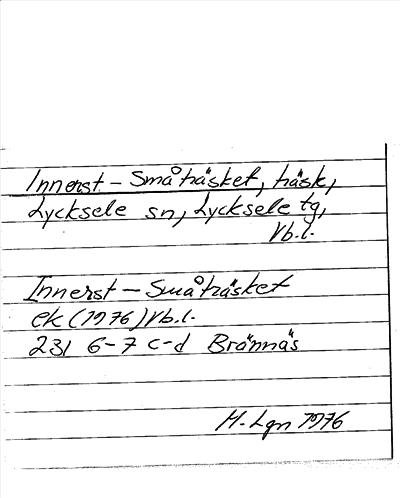 Innerst-Småträsket, träsk,
Lycksele sn, Lycksele tg,
Vb.l.
Innerst-Småträsket
ek (1976) Vb.l.
231 6-7 c-d Brännäs
H. Lgn 1976